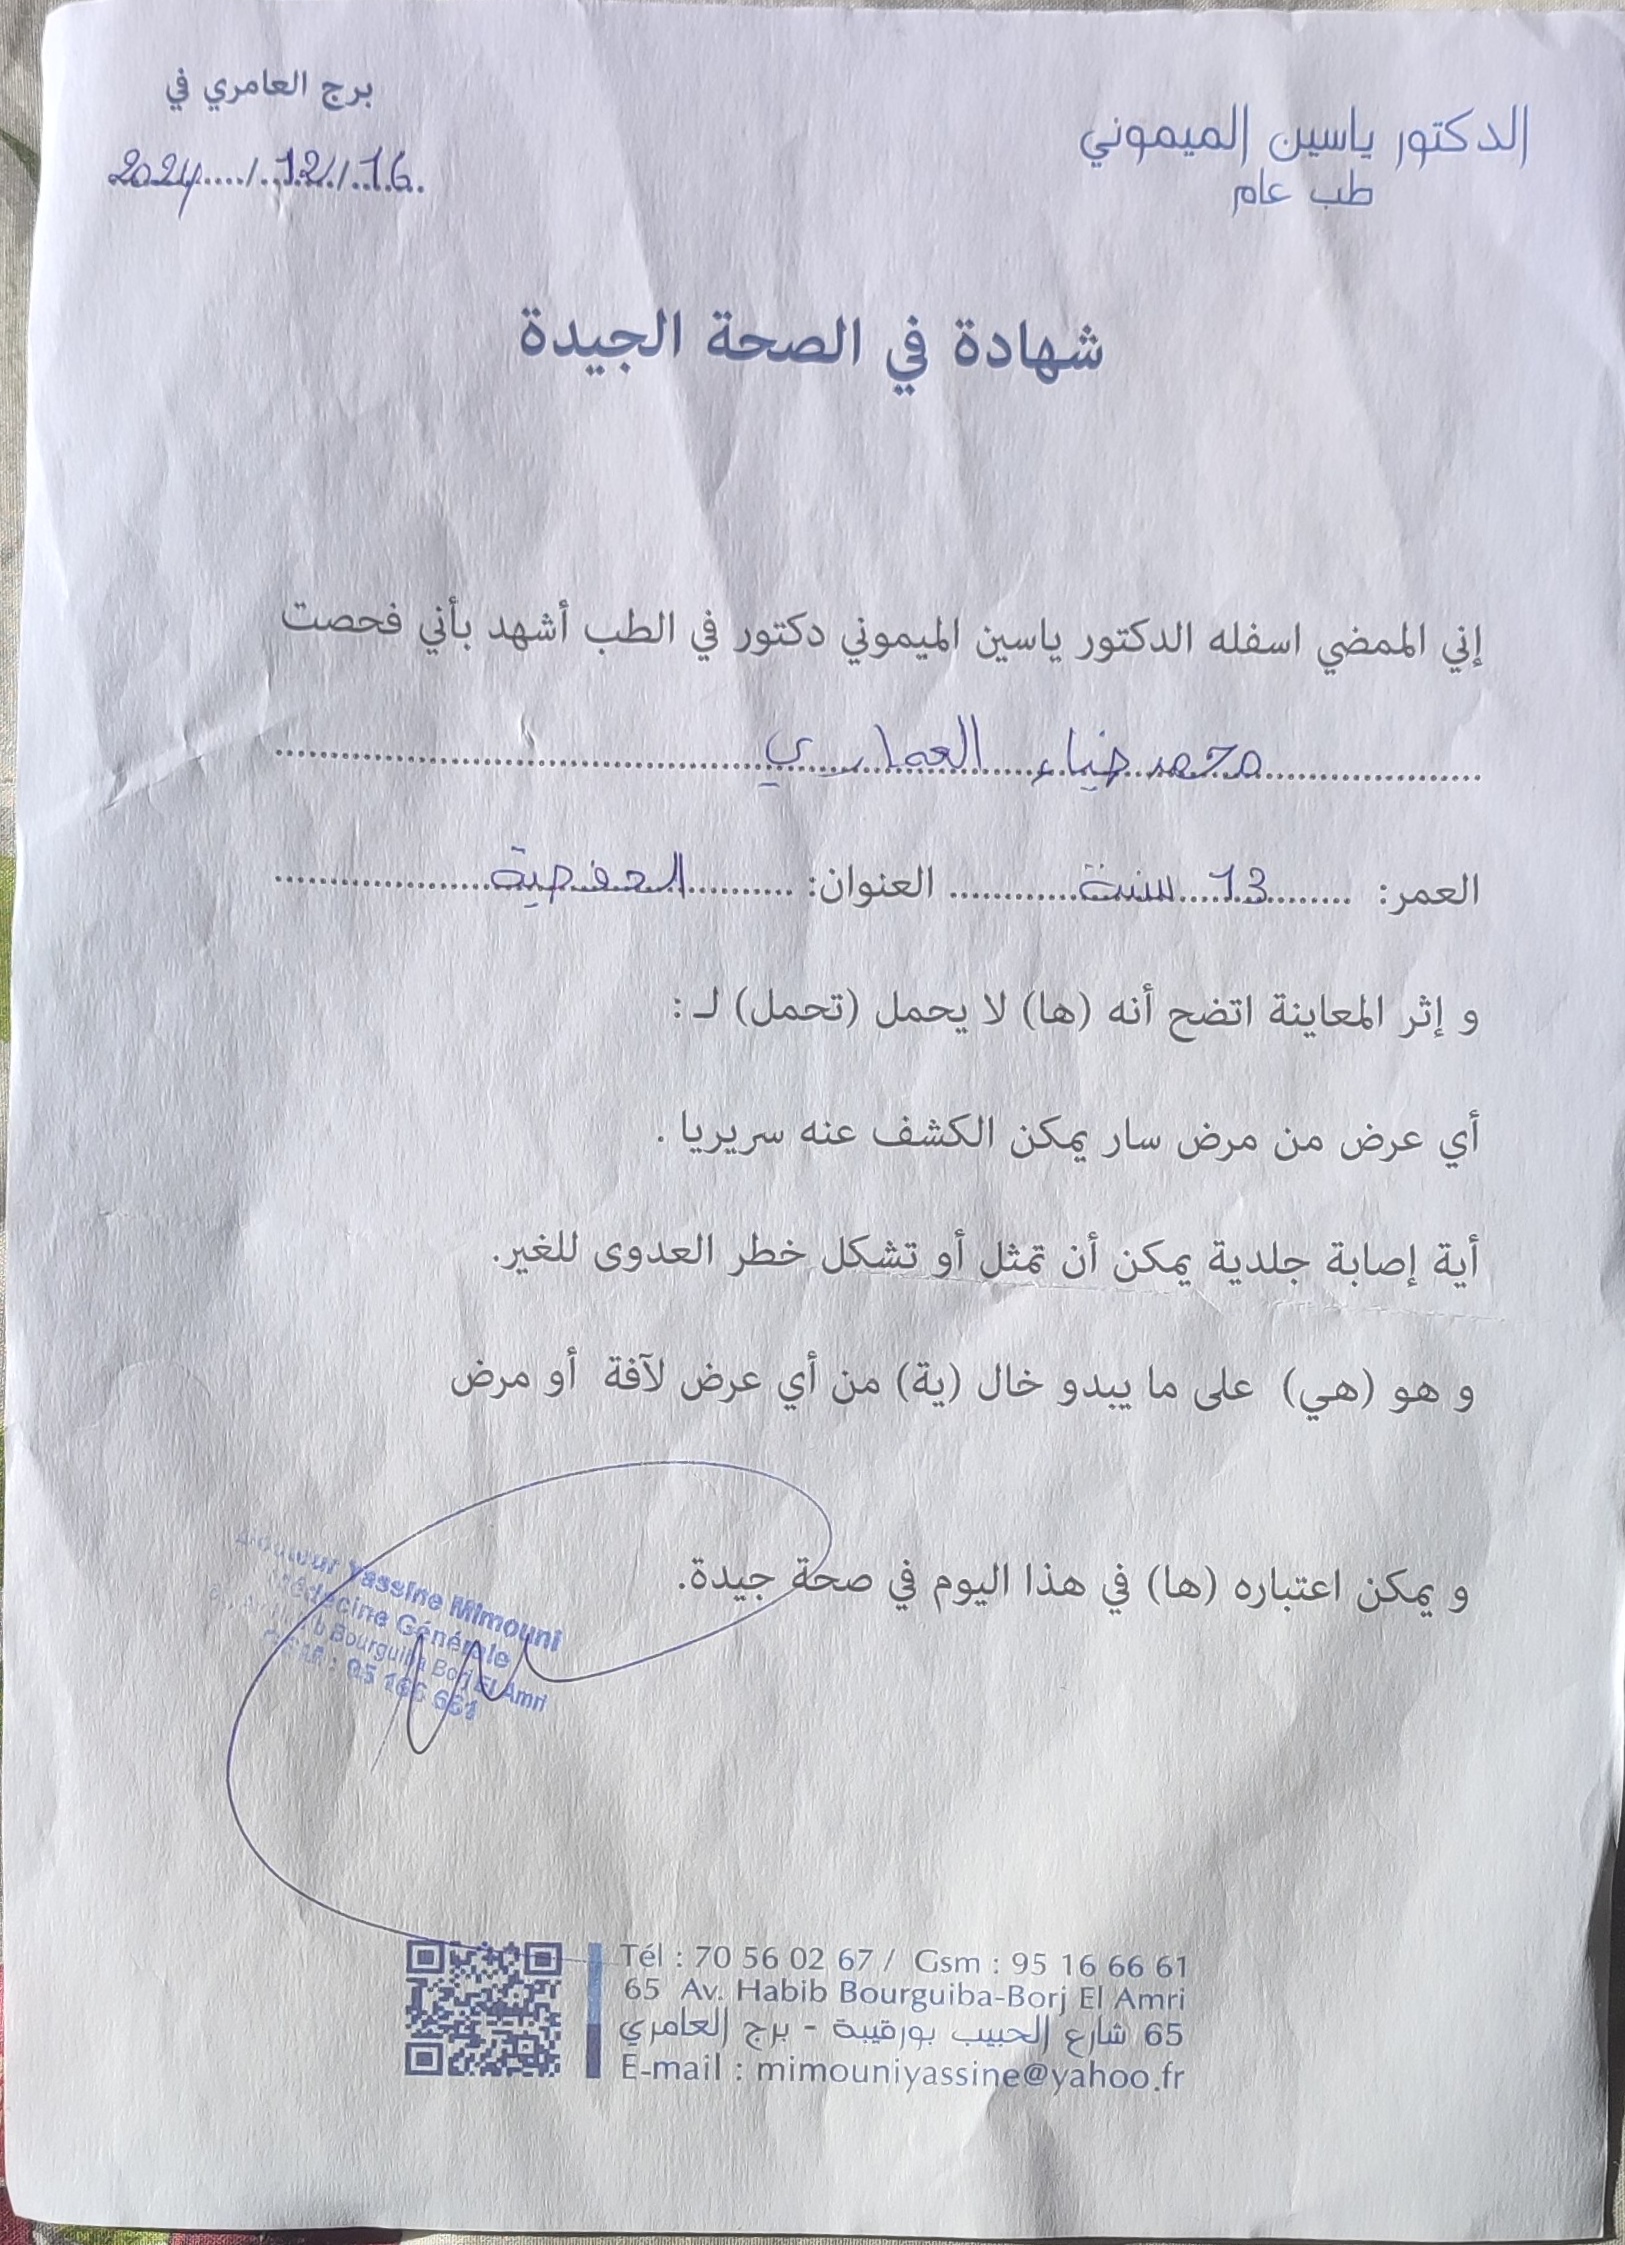 الدكتور ياسين الميموني
طب عام
برج العامري في
16/12/2024
شهادة في الصحة الجيدة
إني الممضي اسفله الدكتور ياسين الميموني دكتور في الطب أشهد بأني فحصت
محمد ضياء العماري
العمر: 13 سنة العنوان:
و إثر المعاينة اتضح أنه (ها) لا يحمل (تحمل) لـ :
أي عرض من مرض سار يمكن الكشف عنه سريريا .
أية إصابة جلدية يمكن أن تمثل أو تشكل خطر العدوى للغير.
و هو (هي) على ما يبدو خال (ية) من أي عرض لآفة أو مرض
و يمكن اعتباره (ها) في هذا اليوم في صحة جيدة.
Yassine Mimouni
Médecine Générale
Bourguiba Borj El Amri
Tél : 70 56 02 67 / Gsm : 95 16 66 61
65 Av. Habib Bourguiba-Borj El Amri
65 شارع الحبيب بورقيبة - برج العامري
E-mail : mimouniyassine@yahoo.fr